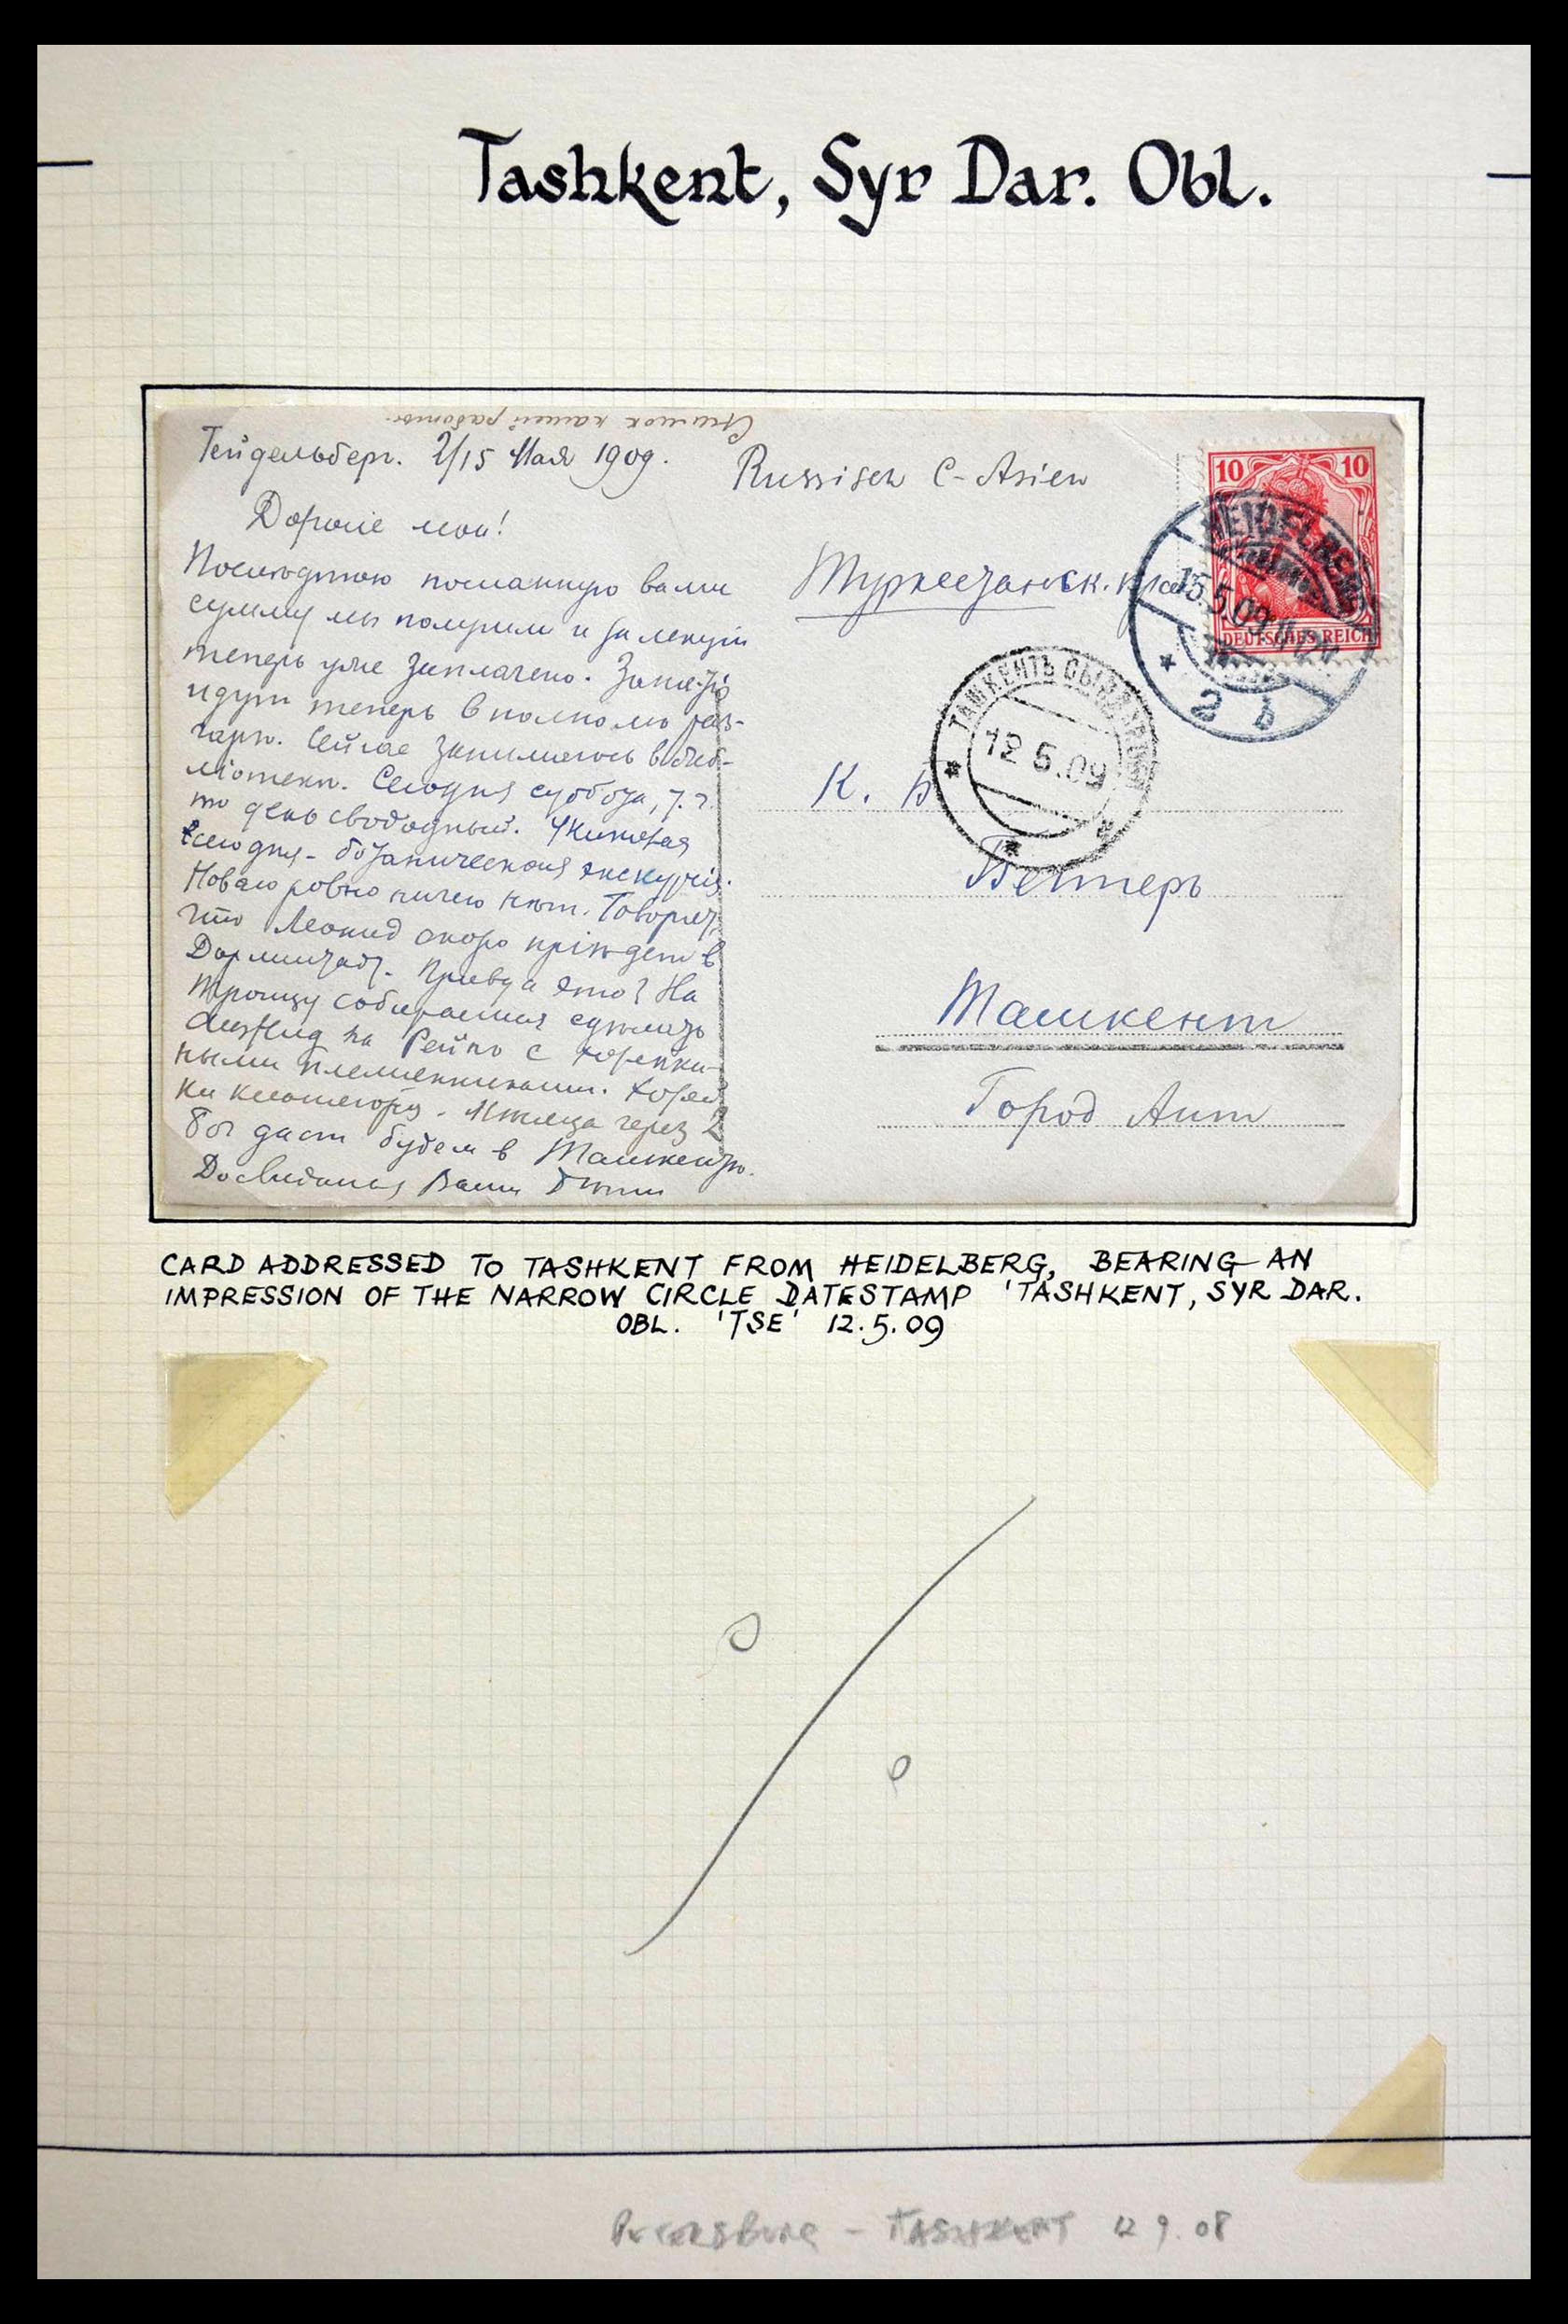 Tashkent, Syr Dar. Obl.
Снимок нашей работы.
Гейдельберг. 2/15 Мая 1909.
Дорогие мои!
Последнюю посланную вами
сумму мы получили и за лекции
теперь уже заплачено. Занятія
идут теперь в полном раз-
гарѣ. Сейчас занимаюсь в биб-
ліотекѣ. Сегодня суббота, т. е.
то день свободный. У Китотая
сегодня - ботаническая экскурсія.
Новаго ровно ничего нѣт. Говорят,
что Леонид скоро пріѣдет в
Дармштадт. Правда это? На
Троицу собираемся сдѣлать
Ausflug на Рейн с
ными племенниками.
Мѣсяца через 2
Бог даст будем в Ташкентѣ.
Досвиданья Ваши Дѣти
Russisch C-Asien
Туркестанск. кра
10 10
DEUTSCHES REICH
HEIDELBERG
15.5.09
* 2 b
ТАШКЕНТЪ СЫРЪ-ДАР.
12 5.09
К. В
Веггеръ
Ташкент
Город Аит
CARD ADDRESSED TO TASHKENT FROM HEIDELBERG, BEARING AN
IMPRESSION OF THE NARROW CIRCLE DATESTAMP 'TASHKENT, SYR DAR.
OBL. 'TSE' 12.5.09
PETERSBURG - TASHKENT 12 9.08